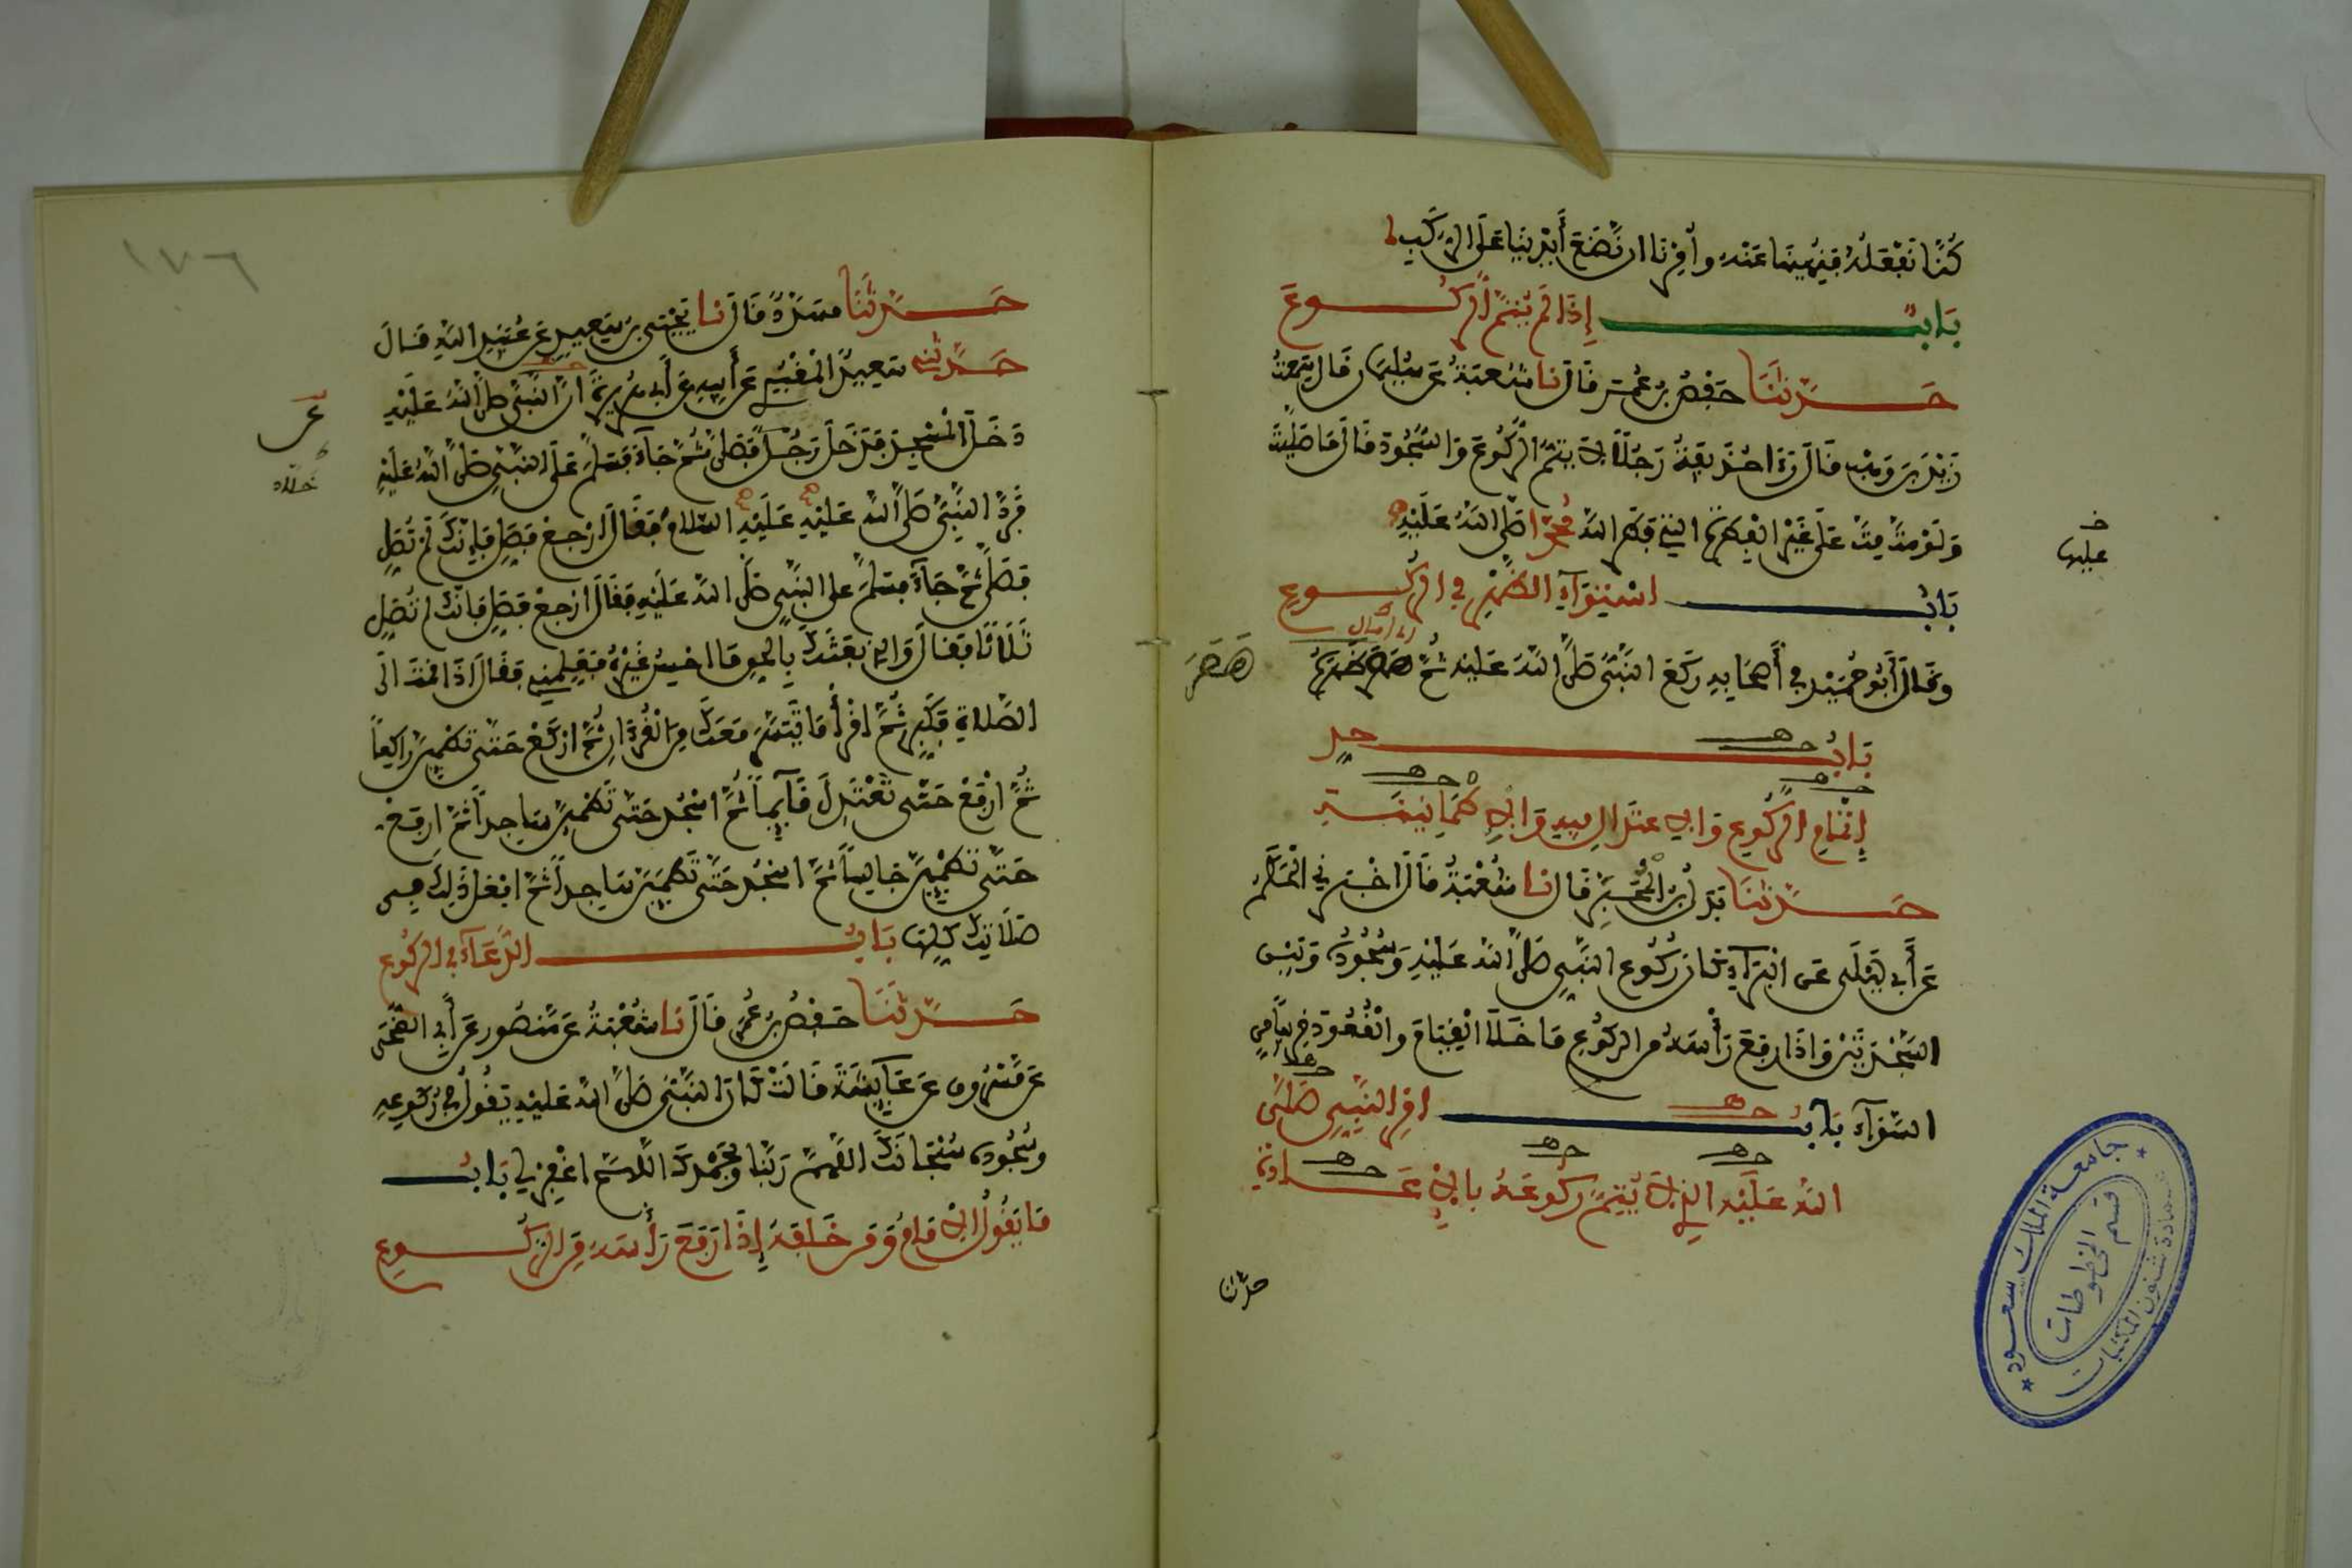 كُنَّا نَفْعَلُهُ فَنُهِينَا عَنْهُ وأُمِرْنَا ان نَّضَعَ أَيْدِينَا عَلَى الرُّكَبِ
بَابٌ إِذَا لَمْ يُتِمَّ الرُّكُوعَ
حَدَّثَنَا حَفْصُ بنُ عُمَرَ قَالَ نا شُعْبَةُ عَن سُلَيْمَانَ قَالَ سَمِعْتُ
زَيْدَ بنَ وَهْبٍ قَالَ رَءَا حُذَيْفَةُ رَجُلًا لَا يُتِمُّ الرُّكُوعَ وَالسُّجُودَ قَالَ مَا صَلَّيْتَ
وَلَوْ مُتَّ مِتَّ عَلَى غَيْرِ الْفِطْرَةِ التِي فَطَرَ اللَّهُ مُحَمَّدًا صَلَّى اللَّهُ عَلَيْهِ
خ عليها
بَابُ اسْتِوَآءِ الظَّهْرِ فِي الرُّكُوعِ
وقَالَ أَبُو حُمَيْدٍ فِي أَصْحَابِهِ رَكَعَ النَّبِيُّ صَلَّى اللَّهُ عَلَيْهِ ثُمَّ هَصَرَ ظَهْرَهُ
هَصَرَ
بَابُ حدِّ
إِتْمَامِ الرُّكُوعِ وَالِاعْتِدَالِ فِيهِ وَالِاطْمَأْنِينَةِ
حَدَّثَنَا بَدَلُ بْنُ الْمُحَبَّرِ قَالَ نا شُعْبَةُ قَالَ أَخْبَرَنِي الْحَكَمُ
عَن أَبِي لَيْلَى عَنِ الْبَرَآءِ كَانَ رُكُوعُ النَّبِيِّ صَلَّى اللَّهُ عَلَيْهِ وَسُجُودُهُ وَبَيْنَ
السَّجْدَتَيْنِ وَإذَا رَفَعَ رَأْسَهُ مِنَ الرُّكُوعِ مَا خَلَا الْقِيَامَ والْقُعُودَ قَرِيبًا مِنَ
السَّوَآءِ بَابُ امْرِ النَّبِيِّ صَلَّى
اللَّهُ عَلَيْهِ الذِي لَا يُتِمُّ رُكُوعَهُ بِالِإعَادَةِ
حدّثنا
١٧٦
حَدَّثَنَا مُسَدَّدٌ قَالَ نا يَحْيَى بنُ سَعِيدٍ عَن عُبَيْدِ اللَّهِ قَالَ
حَدَّثَنِي سَعِيدٌ الْمَقْبُرِيُّ عَن أَبِيهِ عَن أَبِي هُرَيْرَةَ أنَّ النَّبِيَّ صَلَّى اللَّهُ عَلَيْهِ
دَخَلَ الْمَسْجِدَ فَدَخَلَ رَجُلٌ فَصَلَّى ثُمَّ جَآءَ فَسَلَّمَ عَلَى النَّبِيِّ صَلَّى اللَّهُ عَلَيْهِ
فَرَدَّ النَّبِيُّ صَلَّى اللَّهُ عَلَيْهِ عَلَيْهِ السَّلَامَ فَقَالَ ارْجِعْ فَصَلِّ فَإِنَّكَ لَمْ تُصَلِّ
فَصَلَّى ثُمَّ جَآءَ فَسَلَّمَ عَلَى النَّبِيِّ صَلَّى اللَّهُ عَلَيْهِ فَقَالَ ارْجِعْ فَصَلِّ فَإنَّكَ لَمْ تُصَلِّ
ثَلَاثًا فَقَالَ وَالذِي بَعَثَكَ بِالْحَقِّ مَا أحْسِنُ غَيْرَهُ فَعَلِّمْنِي فَقَالَ إذَا قُمْتَ الَى
الصَّلَاةِ فَكَبِّرْ ثُمَّ اقْرَأْ مَا تَيَسَّرَ مَعَكَ مِنَ الْقُرْءَانِ ثُمَّ ارْكَعْ حَتَّى تَطْمَئِنَّ رَاكِعًا
ثُمَّ ارْفَعْ حَتَّى تَعْتَدِلَ قَآئِمًا ثُمَّ اسْجُدْ حَتَّى تَطْمَئِنَّ سَاجِدًا ثُمَّ ارْفَعْ
حَتَّى تَطْمَئِنَّ جَالِسًا ثُمَّ اسْجُدْ حَتَّى تَطْمَئِنَّ سَاجِدًا ثُمَّ افْعَلْ ذَلِكَ فِي
صَلَاتِكَ كُلِّهَا بَابُ الدُّعَآءِ فِي الرُّكُوعِ
حَدَّثَنَا حَفْصُ بنُ عُمَرَ قَالَ نا شُعْبَةُ عَن مَّنْصُورٍ عَن أَبِي الضُّحَى
عَن مَّسْرُوقٍ عَن عَآئِشَةَ قَالَتْ كَانَ النَّبِيُّ صَلَّى اللَّهُ عَلَيْهِ يَقُولُ فِي رُكُوعِهِ
وسُجُودِهِ سُبْحَانَكَ اللَّهُمَّ رَبَّنَا وَبِحَمْدِكَ اللَّهُمَّ اغْفِرْ لِي بَابُ
مَا يَقُولُ الِامَامُ وَمَنْ خَلْفَهُ إِذَا رَفَعَ رَأْسَهُ مِنَ الرُّكُوعِ
جامعة الملك سعود
عمادة شئون المكتبات
قسم المخطوطات